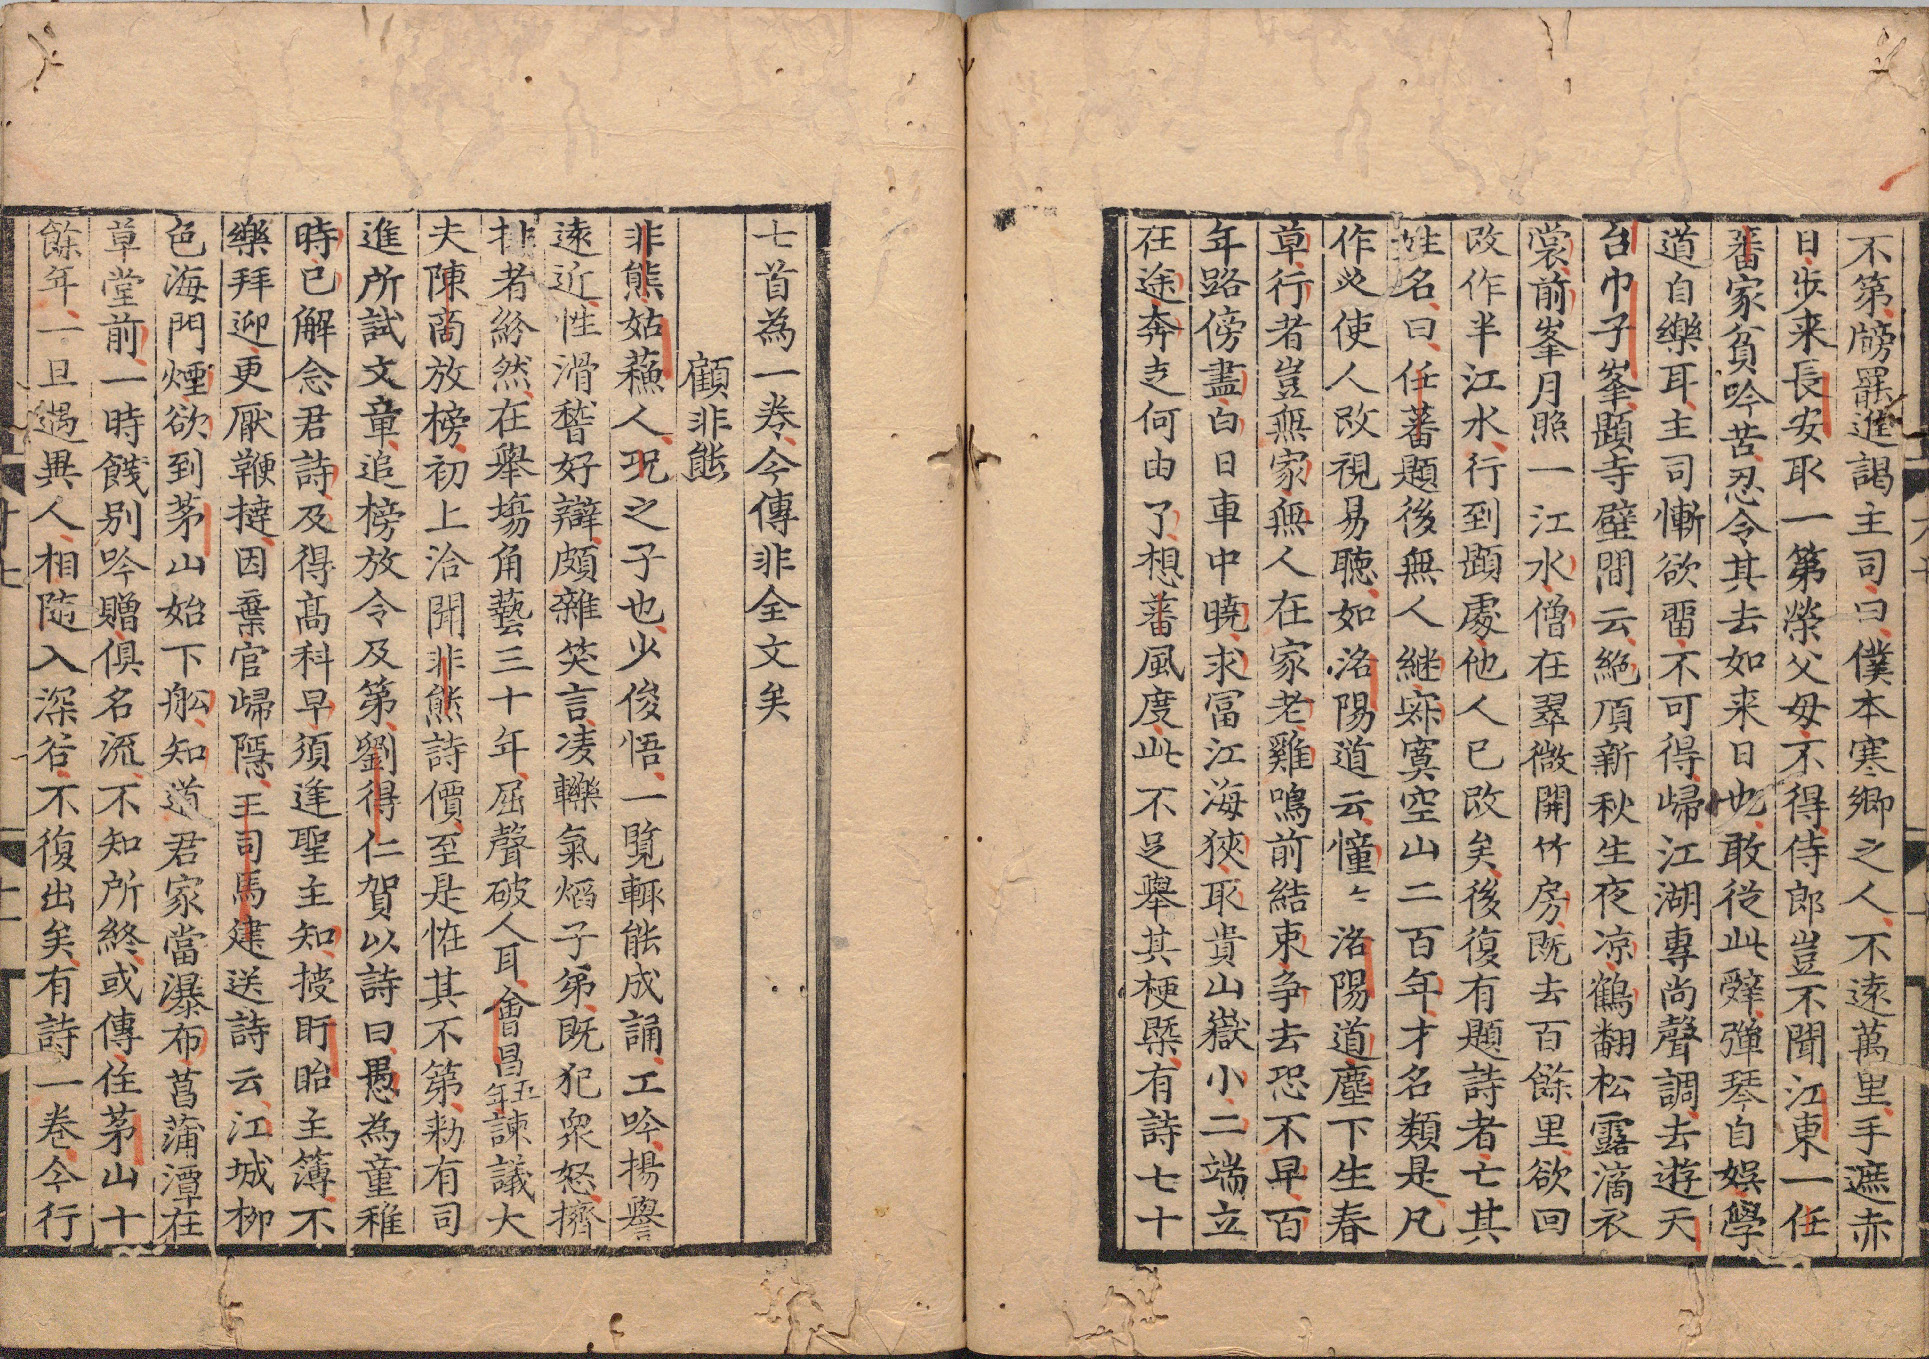 不第牓罷進謁主司曰僕本寒鄉之人不遠萬里手遮赤
日步来長安取一第榮父母不得侍郎豈不聞江東一任
蕃家貧吟苦忍令其去如来日也敢從此辭彈琴自娱學
道自樂耳主司慚欲畱不可得歸江湖專尚聲調去遊天
台巾子峯題寺壁間云絶頂新秋生夜凉鶴翻松露滴衣
裳前峯月照一江水僧在翠微開竹房既去百餘里欲回
改作半江水行到題處他人已改矣後復有題詩者亡其
姓名曰任蕃題後無人継寂寞空山二百年才名類是凡
作必使人改視易聽如洛陽道云憧〻洛陽道塵下生春
草行者豈無家無人在家老雞鳴前結束争去恐不早百
年路傍盡白日車中曉求富江海狹取貴山嶽小二端立
在途奔走何由了想蕃風度此不足舉其梗槩有詩七十
七首為一卷今傳非全文矣
顧非熊
非熊姑蘇人况之子也少俊悟一覽輒能成誦工吟揚譽
遠近性滑稽好辯頗雜笑言凌轢氣熖子弟既犯衆怒擠
排者紛然在舉塲角藝三十年屈聲破人耳會昌五年諫議大
夫陳商放榜初上洽聞非熊詩價至是恠其不第勑有司
進所試文章追榜放令及第劉得仁賀以詩曰愚為童稚
時已解念君詩及得高科早須逢聖主知授盱眙主簿不
樂拜迎更厭鞭撻因棄官歸隱王司馬建送詩云江城栁
色海門煙欲到茅山始下舩知道君家當瀑布菖蒲潭在
草堂前一時餞别吟贈俱名流不知所終或傳住茅山十
餘年一旦遇異人相隨入深谷不復出矣有詩一卷今行